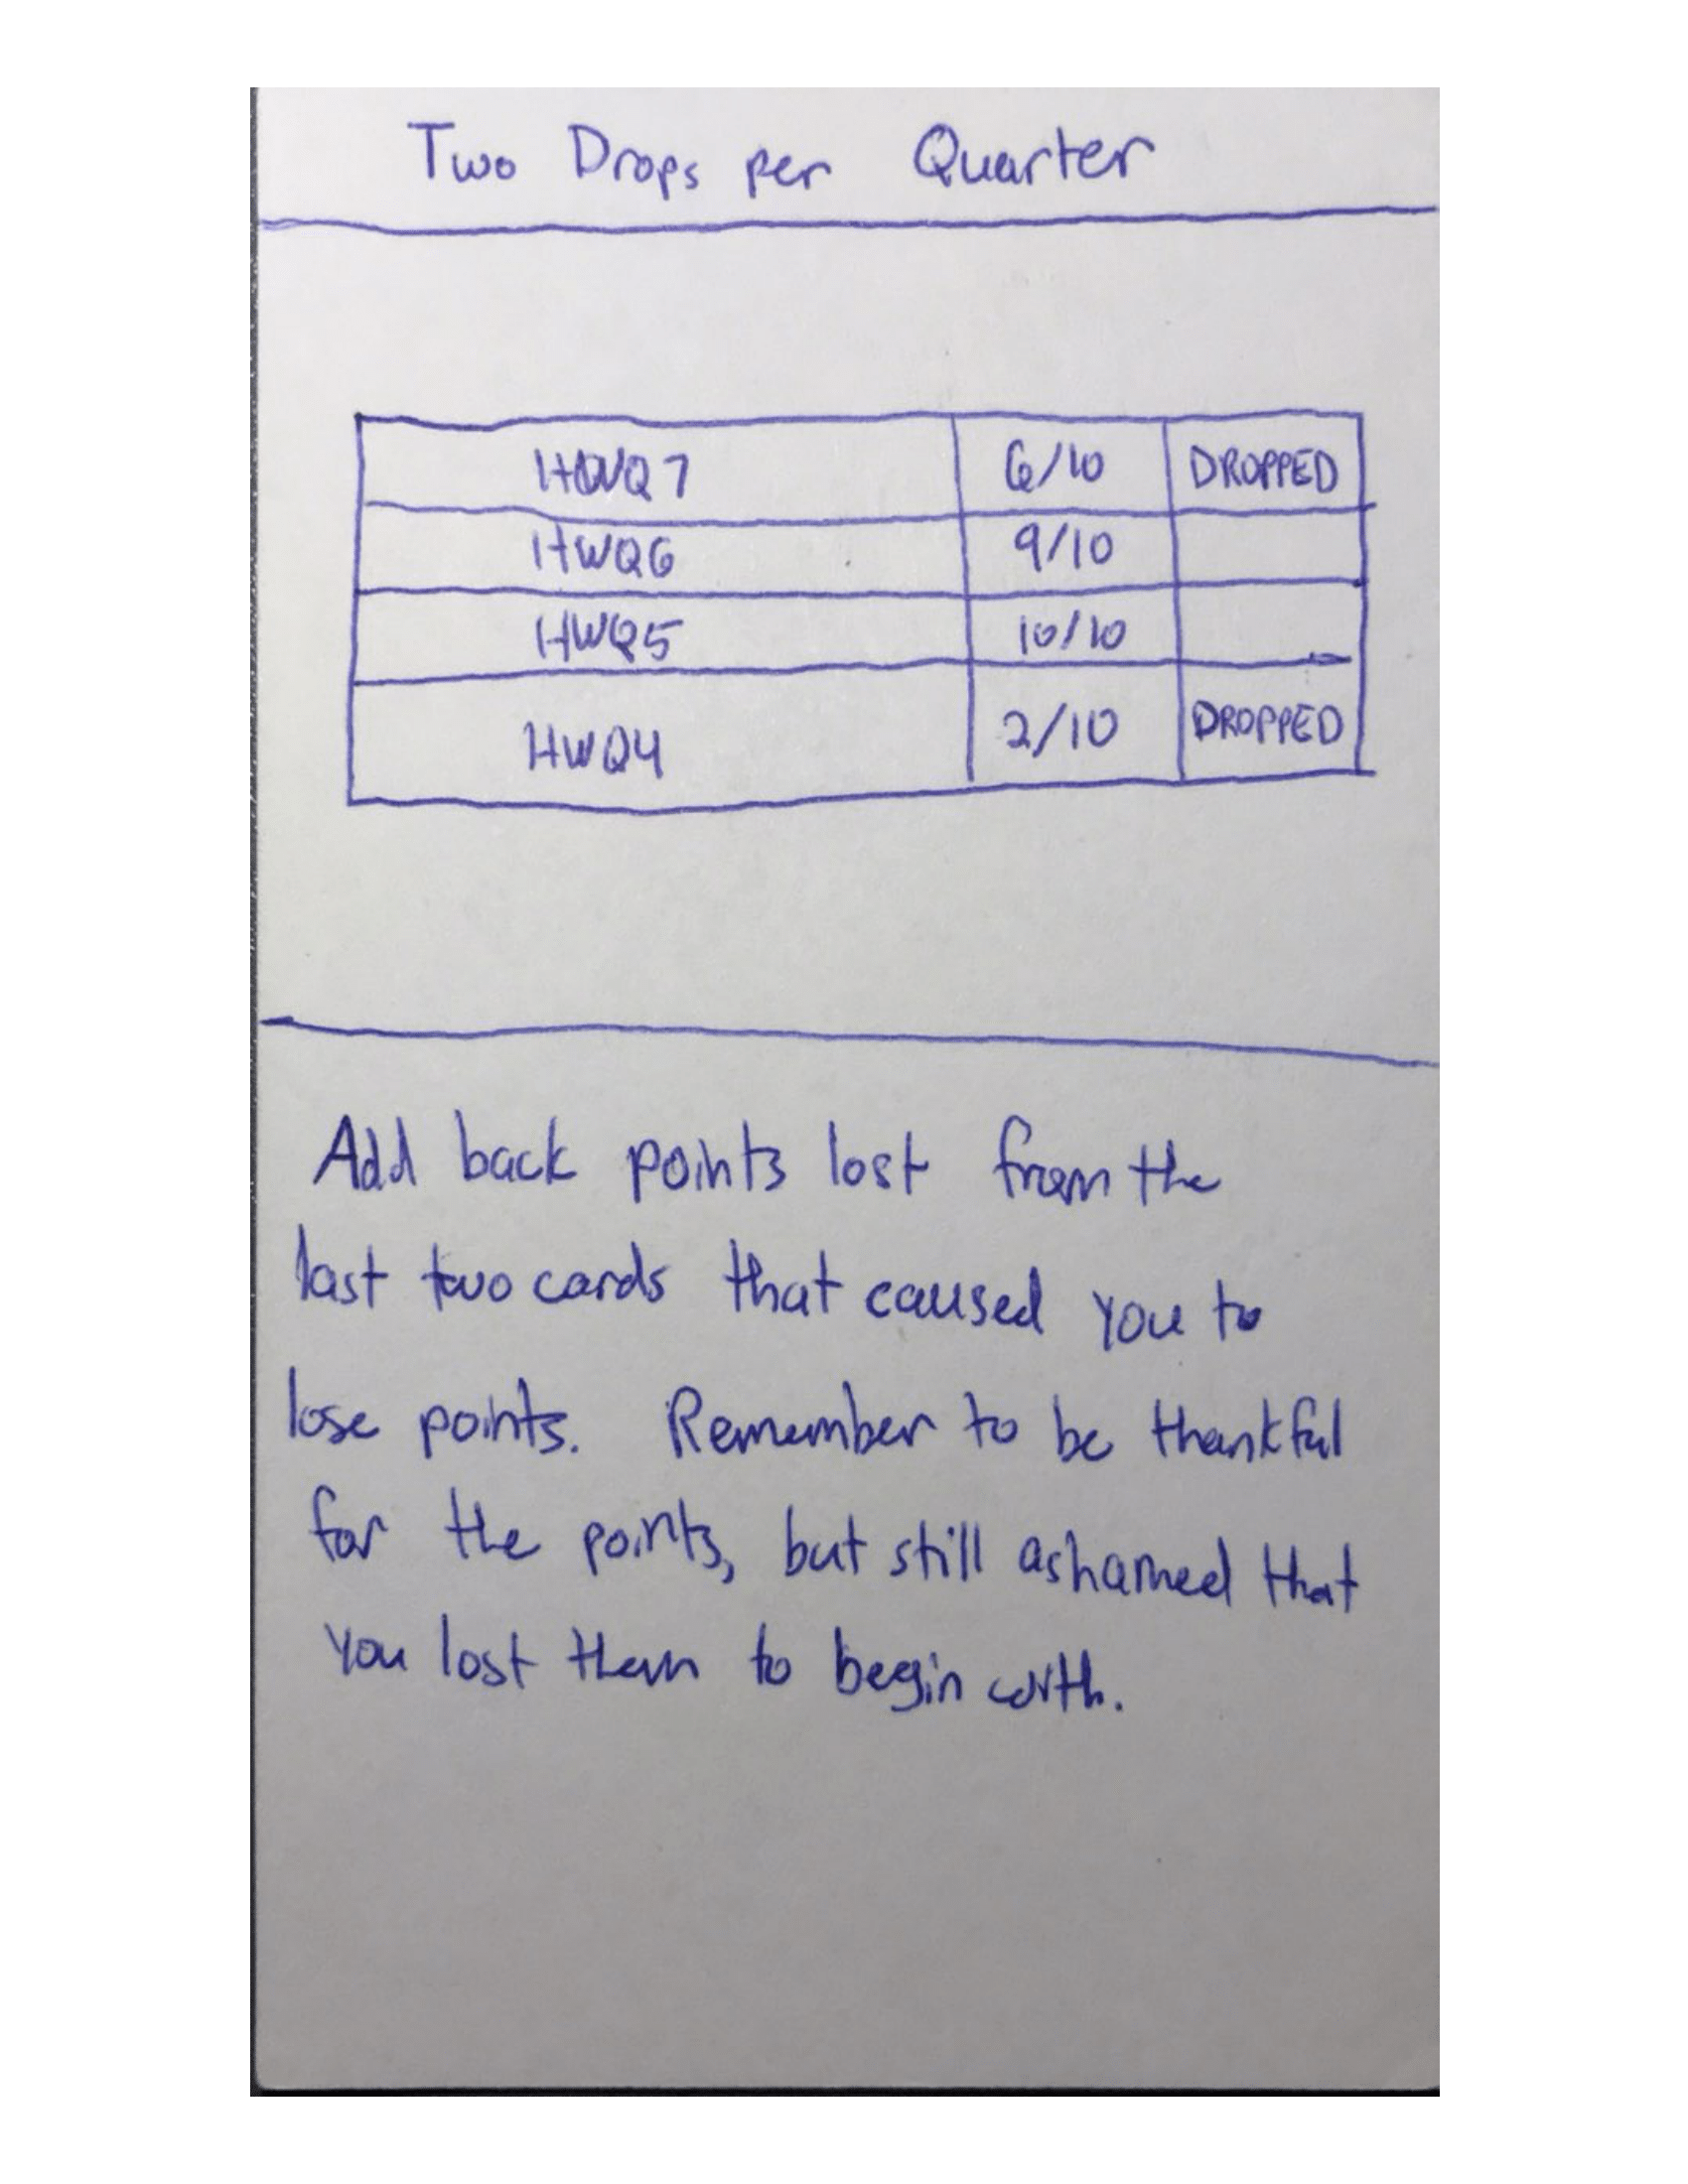 Two Drops per Quarter
HWQ7 6/10 DROPPED
HWQ6 9/10
HWQ5 10/10
HWQ4 2/10 DROPPED
Add back points lost from the
last two cards that caused you to
lose points. Remember to be thankful
for the points, but still ashamed that
you lost them to begin with.